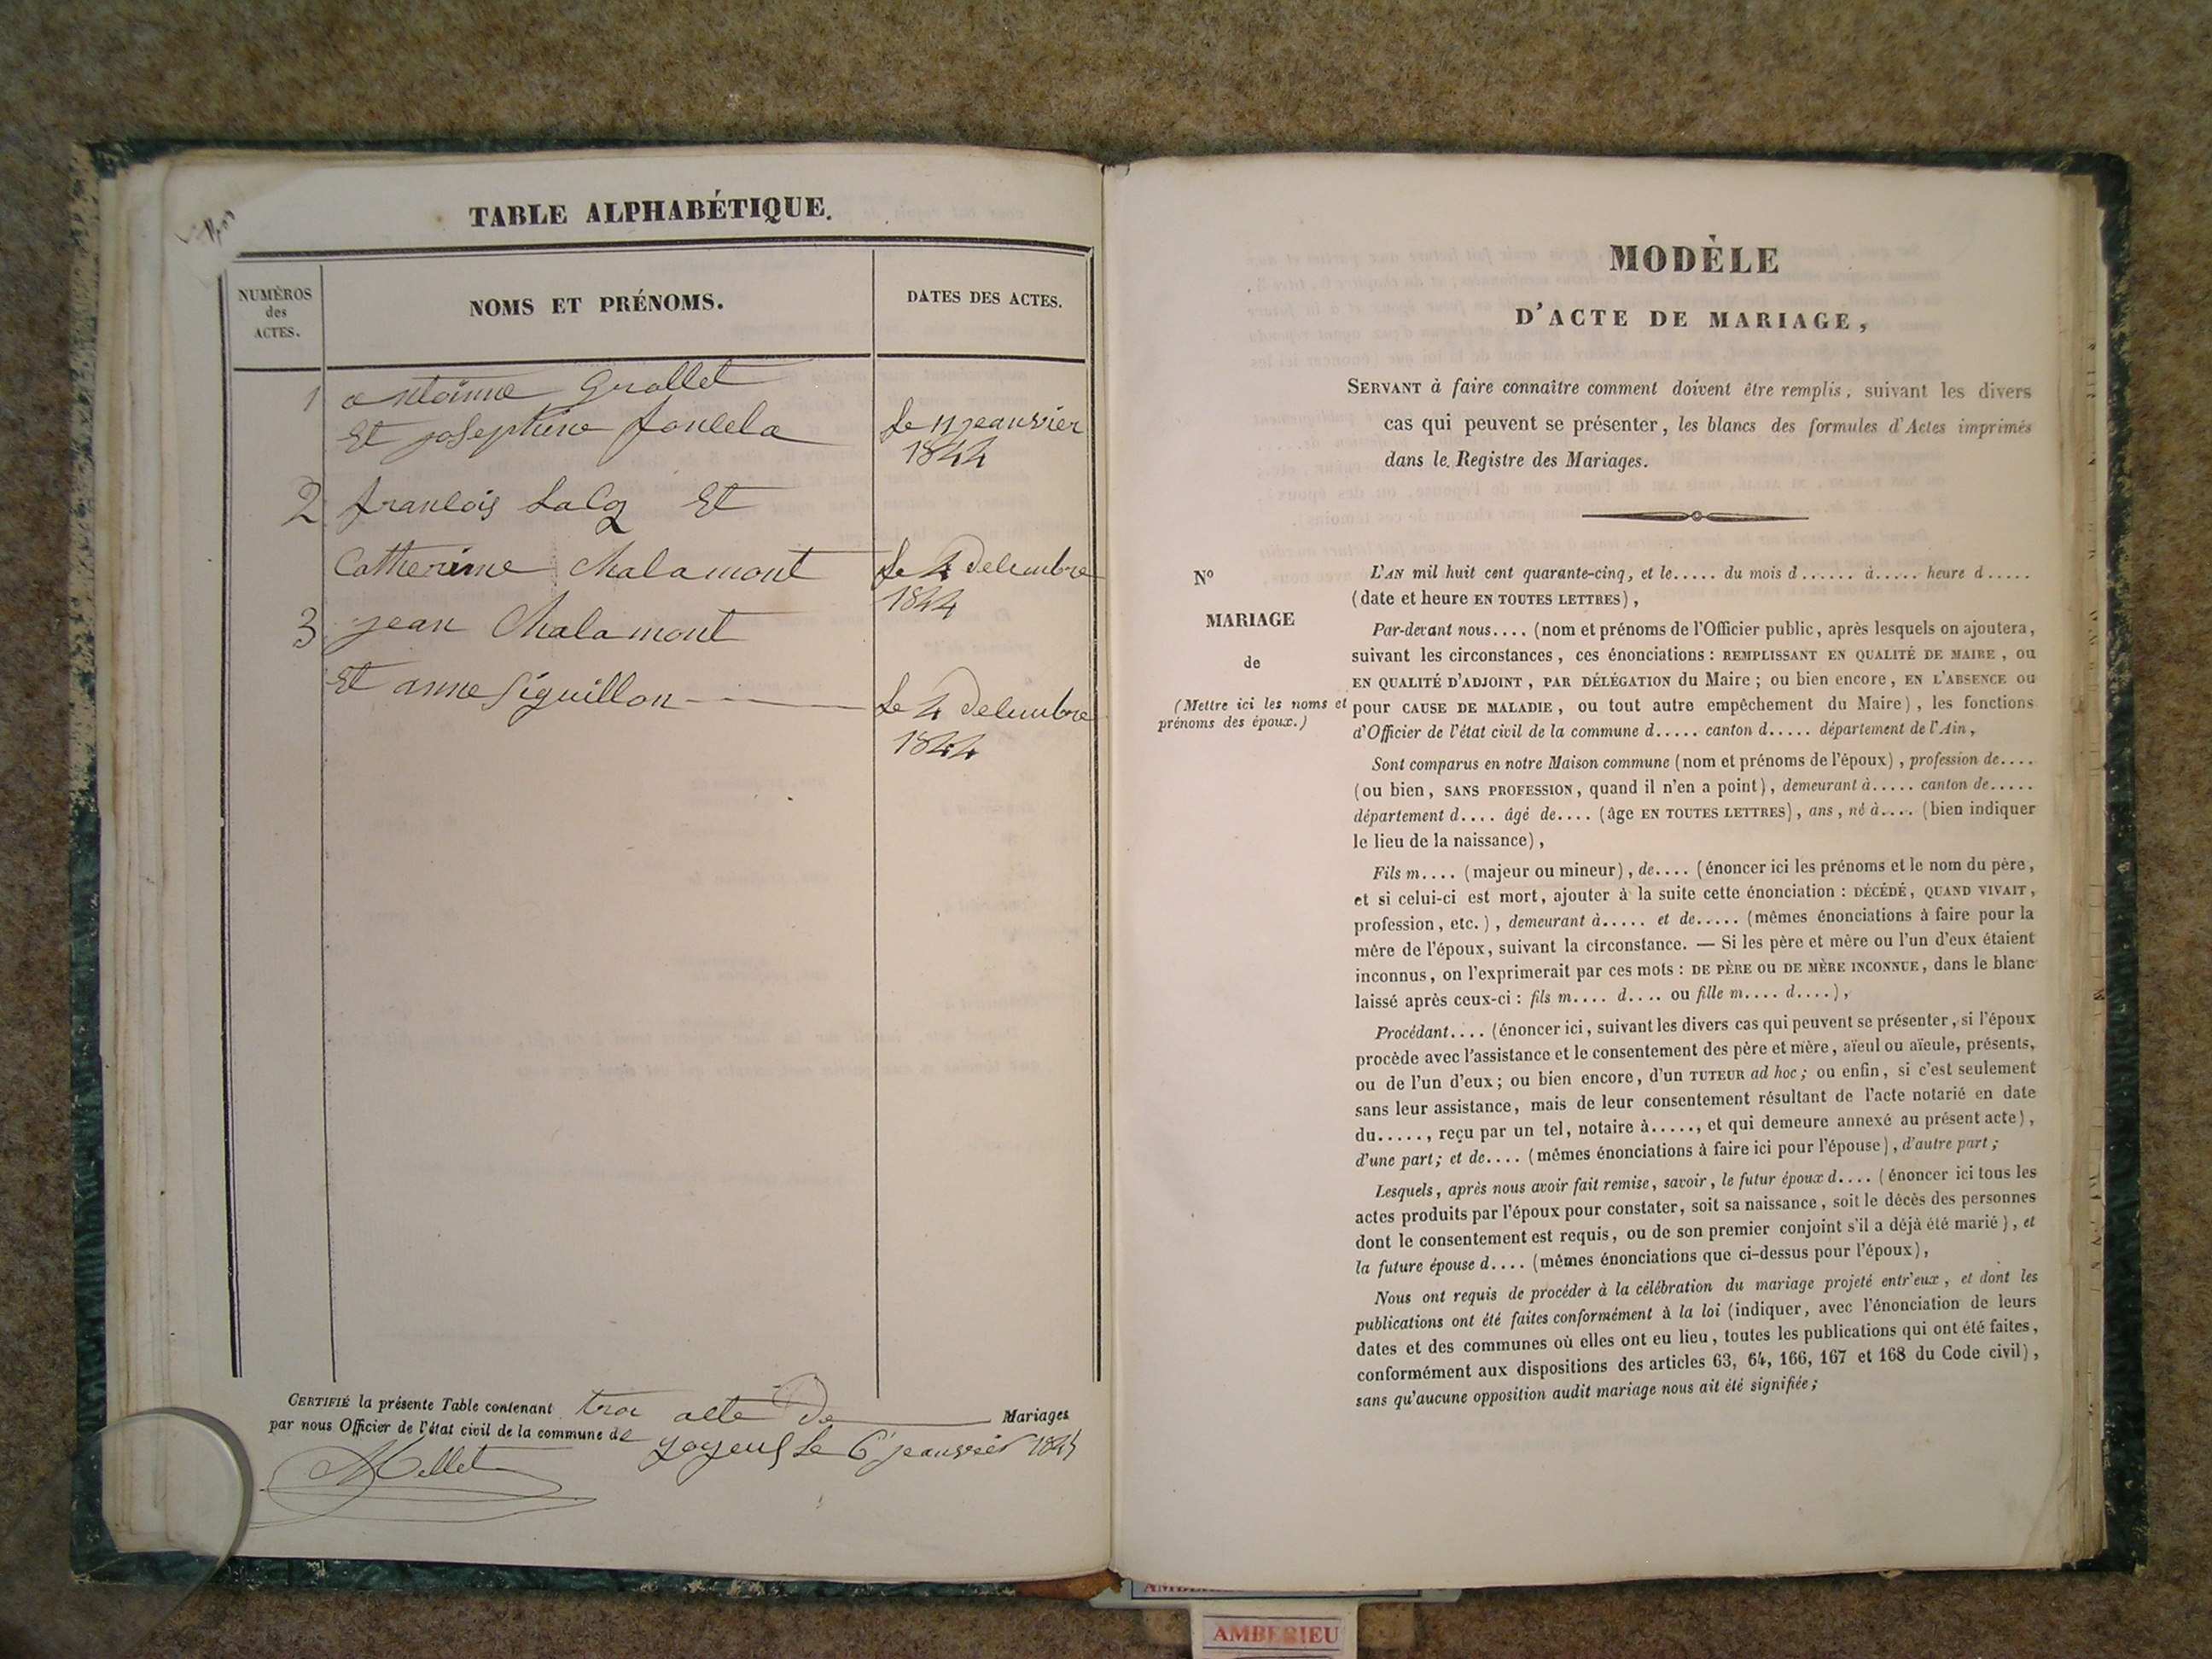 TABLE ALPHABÉTIQUE.
NUMÉROS
des
ACTES.
NOMS ET PRÉNOMS.
DATES DES ACTES.
1 antoinne Grollet
Et josephine foncela
Le 11 jeanvier
1844
2 francois Lacoz Et
Catherinne Chalamont
Le 4 decembre
1844
3 jean Chalamont
Et anne Siguillon
Le 4 decembre
1844
CERTIFIÉ la présente Table contenant troi acte De Mariages
par nous Officier de l'état civil de la commune de Le 6 jeanvier 1845
Mellet
MODÈLE
D'ACTE DE MARIAGE,
SERVANT à faire connaître comment doivent être remplis, suivant les divers
cas qui peuvent se présenter, les blancs des formules d'Actes imprimés
dans le Registre des Mariages.
N°
MARIAGE
de
(Mettre ici les noms et
prénoms des époux.)
L'AN mil huit cent quarante-cinq, et le..... du mois d...... à..... heure d.....
(date et heure EN TOUTES LETTRES),
Par-devant nous.... (nom et prénoms de l'Officier public, après lesquels on ajoutera,
suivant les circonstances, ces énonciations : REMPLISSANT EN QUALITÉ DE MAIRE, ou
EN QUALITÉ D'ADJOINT, PAR DÉLÉGATION du Maire ; ou bien encore, EN L'ABSENCE ou
pour CAUSE DE MALADIE, ou tout autre empêchement du Maire), les fonctions
d'Officier de l'état civil de la commune d..... canton d..... département de l'Ain,
Sont comparus en notre Maison commune (nom et prénoms de l'époux), profession de....
(ou bien, SANS PROFESSION, quand il n'en a point), demeurant à..... canton de.....
département d.... âgé de.... (âge EN TOUTES LETTRES), ans, né à.... (bien indiquer
le lieu de la naissance),
Fils m.... (majeur ou mineur), de.... (énoncer ici les prénoms et le nom du père,
et si celui-ci est mort, ajouter à la suite cette énonciation : DÉCÉDÉ, QUAND VIVAIT,
profession, etc.), demeurant à..... et de..... (mêmes énonciations à faire pour la
mère de l'époux, suivant la circonstance. — Si les père et mère ou l'un d'eux étaient
inconnus, on l'exprimerait par ces mots : DE PÈRE ou DE MÈRE INCONNUE, dans le blanc
laissé après ceux-ci : fils m.... d.... ou fille m.... d....),
Procédant.... (énoncer ici, suivant les divers cas qui peuvent se présenter, si l'époux
procède avec l'assistance et le consentement des père et mère, aïeul ou aïeule, présents,
ou de l'un d'eux ; ou bien encore, d'un TUTEUR ad hoc ; ou enfin, si c'est seulement
sans leur assistance, mais de leur consentement résultant de l'acte notarié en date
du....., reçu par un tel, notaire à....., et qui demeure annexé au présent acte),
d'une part ; et de.... (mêmes énonciations à faire ici pour l'épouse), d'autre part ;
Lesquels, après nous avoir fait remise, savoir, le futur époux d.... (énoncer ici tous les
actes produits par l'époux pour constater, soit sa naissance, soit le décès des personnes
dont le consentement est requis, ou de son premier conjoint s'il a déjà été marié), et
la future épouse d.... (mêmes énonciations que ci-dessus pour l'époux),
Nous ont requis de procéder à la célébration du mariage projeté entr'eux, et dont les
publications ont été faites conformément à la loi (indiquer, avec l'énonciation de leurs
dates et des communes où elles ont eu lieu, toutes les publications qui ont été faites,
conformément aux dispositions des articles 63, 64, 166, 167 et 168 du Code civil),
sans qu'aucune opposition audit mariage nous ait été signifiée ;
AMBERIEU